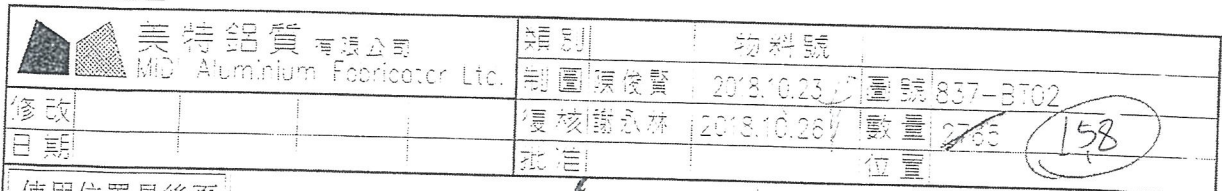 美特鋁質有限公司
MiD Aluminium Fabricator Ltc.
類別 物料號
制圖 陳俊賢 2018.10.23 圖號 837-BT02
修改 復核 謝永林 2018.10.26 數量 2765 158
日期 批准 位置
使用位置見後頁